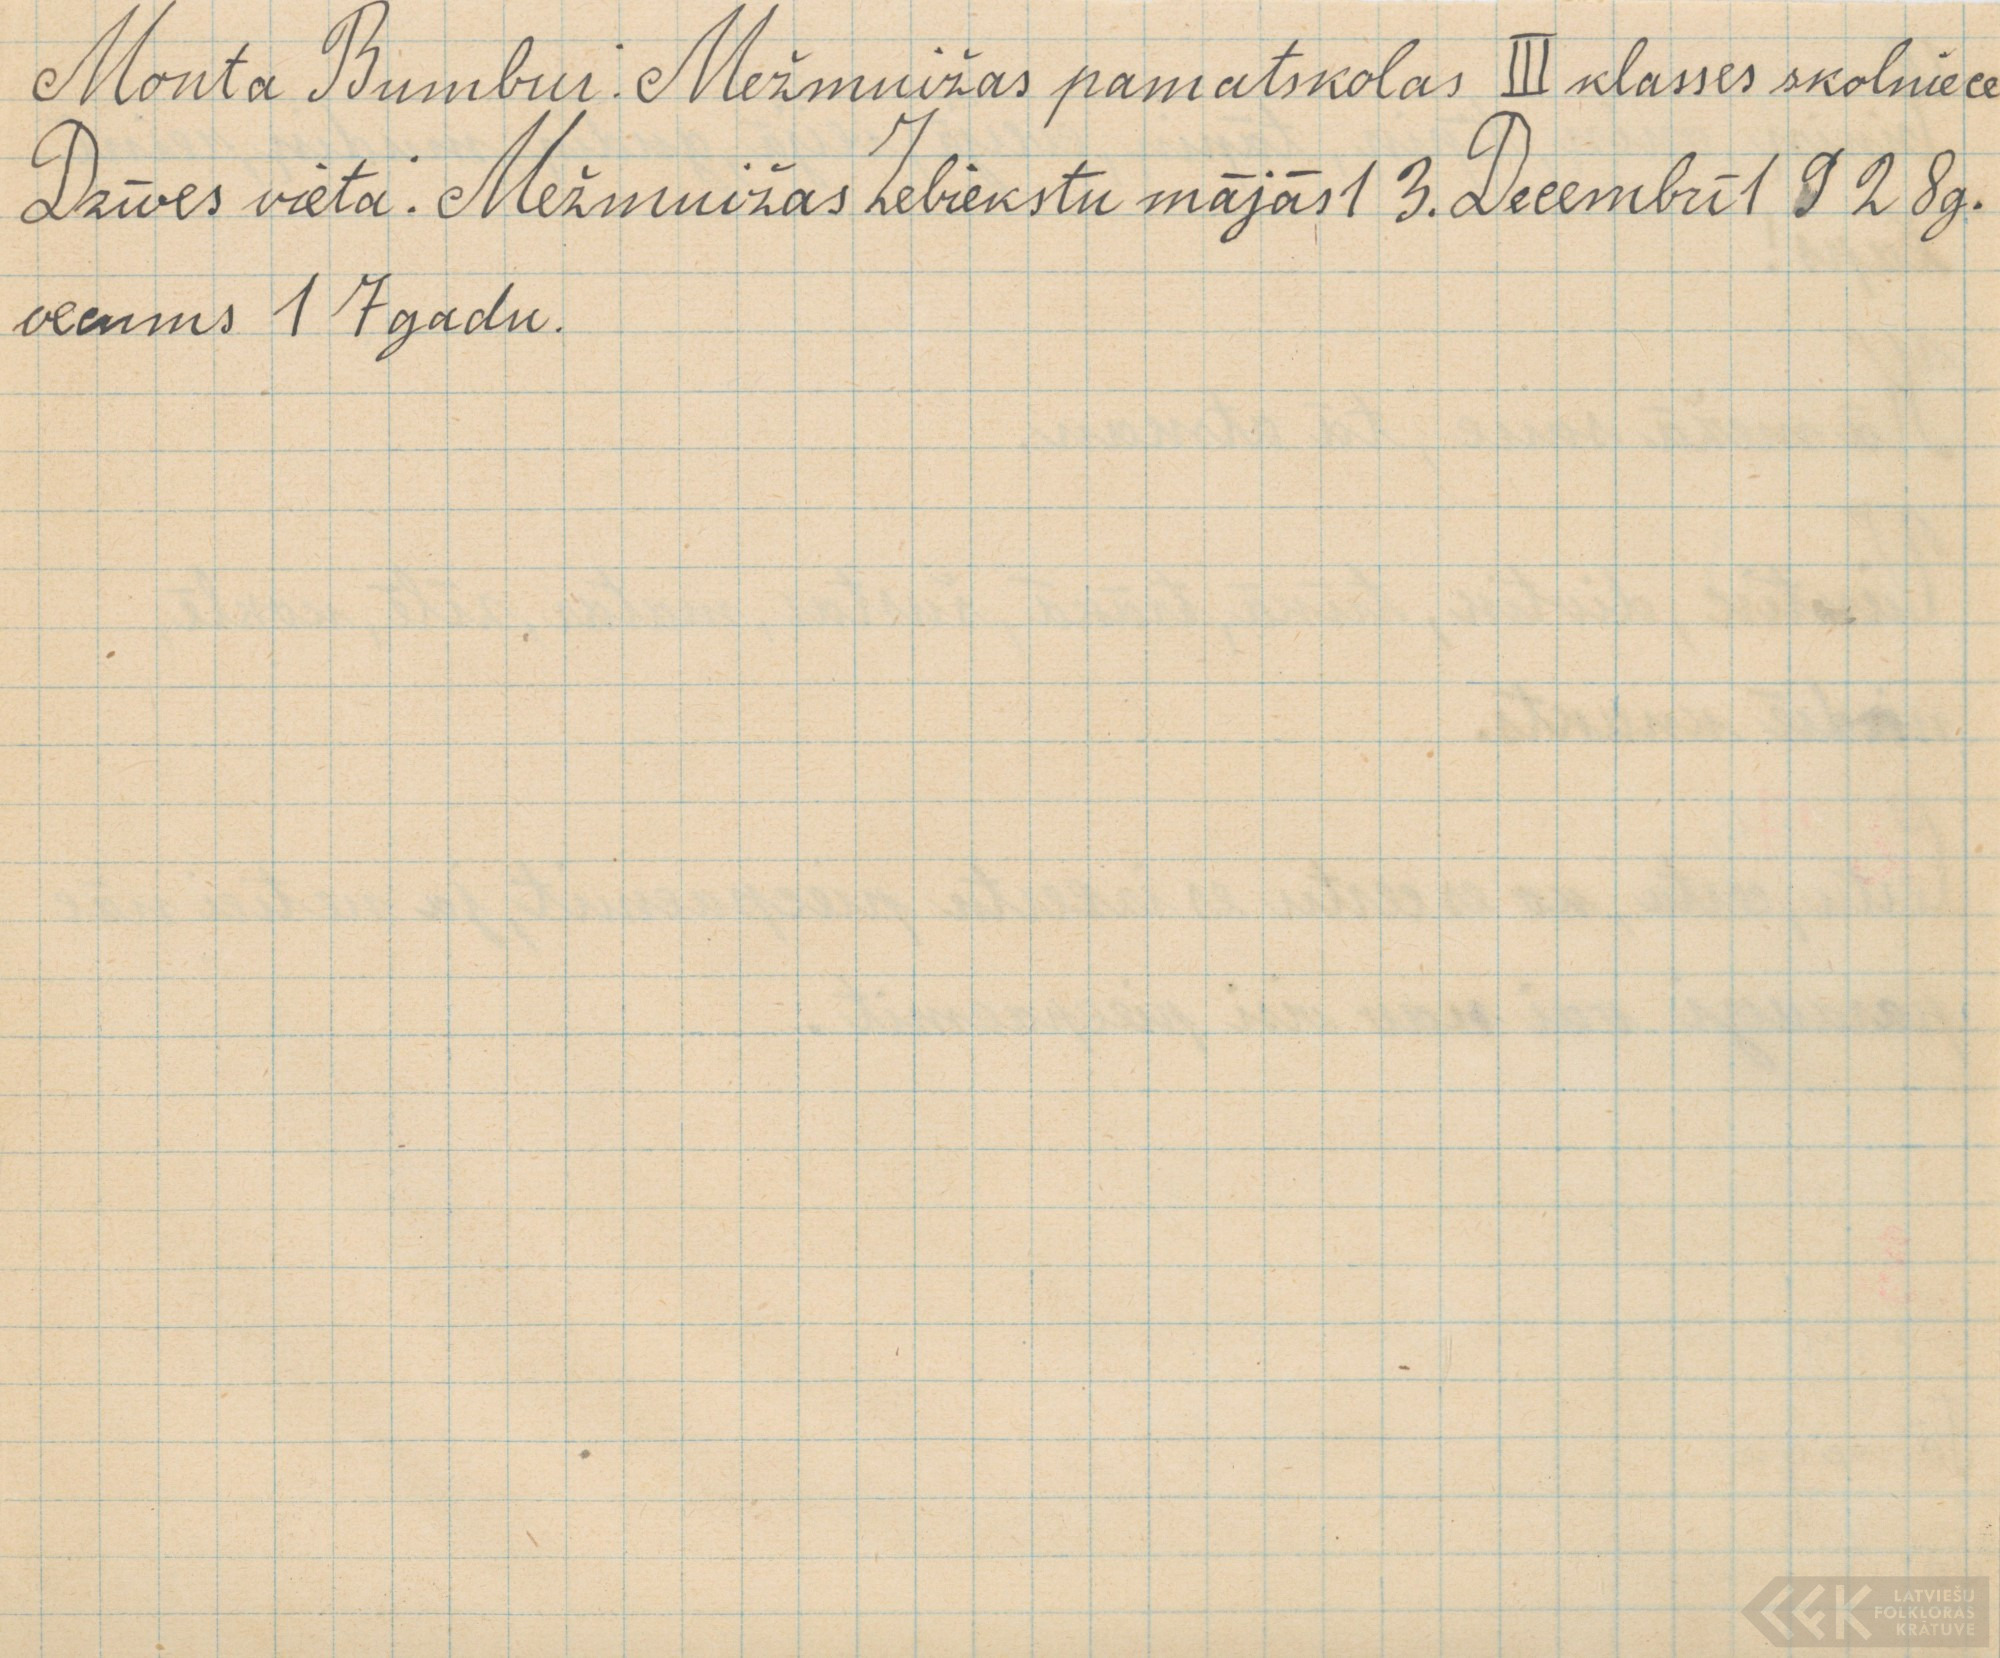 Monta Bumbui. Mežmuižas pamatskolas III klasses skolniece
Dzīves vieta. Mežmuižas Zebiekstu mājās 13. Decembrī 1928g.
vecums 17gadu.
LATVIEŠU
FOLKLORAS
KRĀTUVE